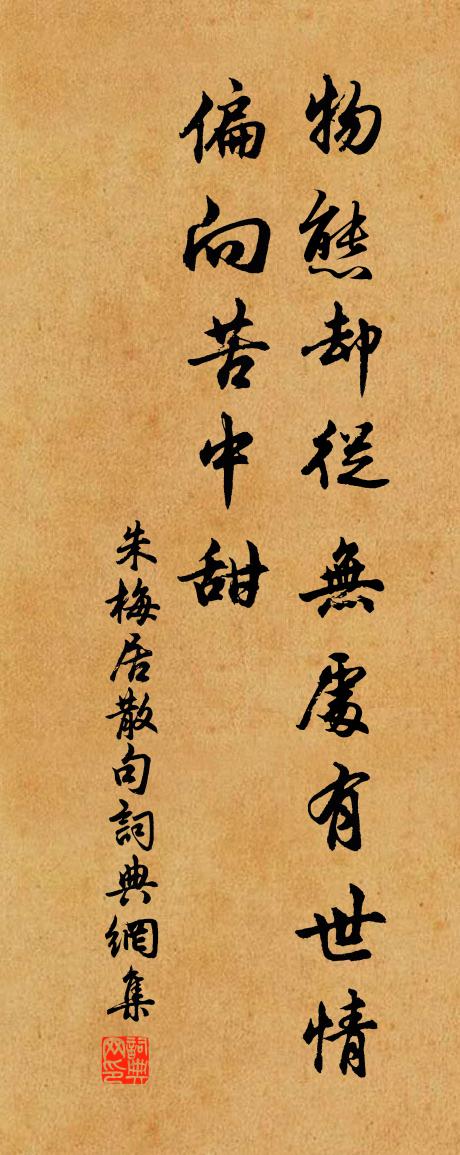 物態却從無處有世情
偏向苦中甜
朱梅居散句詞典網集
詞典網印